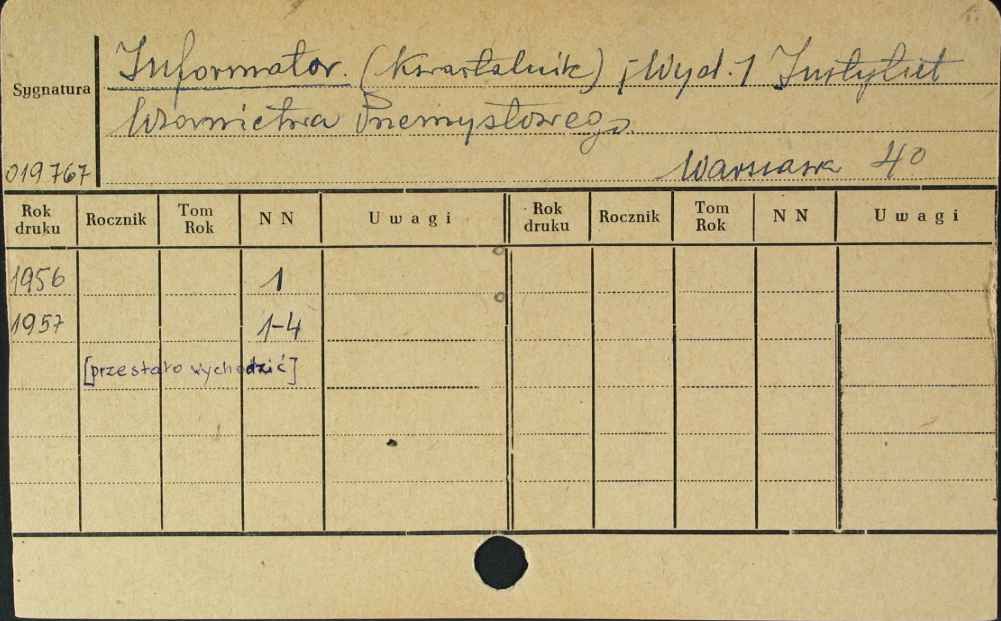 Informator. (Kwartalnik) [Wyd.] Instytut
Sygnatura
Wzornictwa Przemysłowego.
019767
Warszawa 4º
Rok druku Rocznik Tom Rok N N Uwagi Rok druku Rocznik Tom Rok N N Uwagi
1956 1
1957 1-4
[przestało wychodzić]